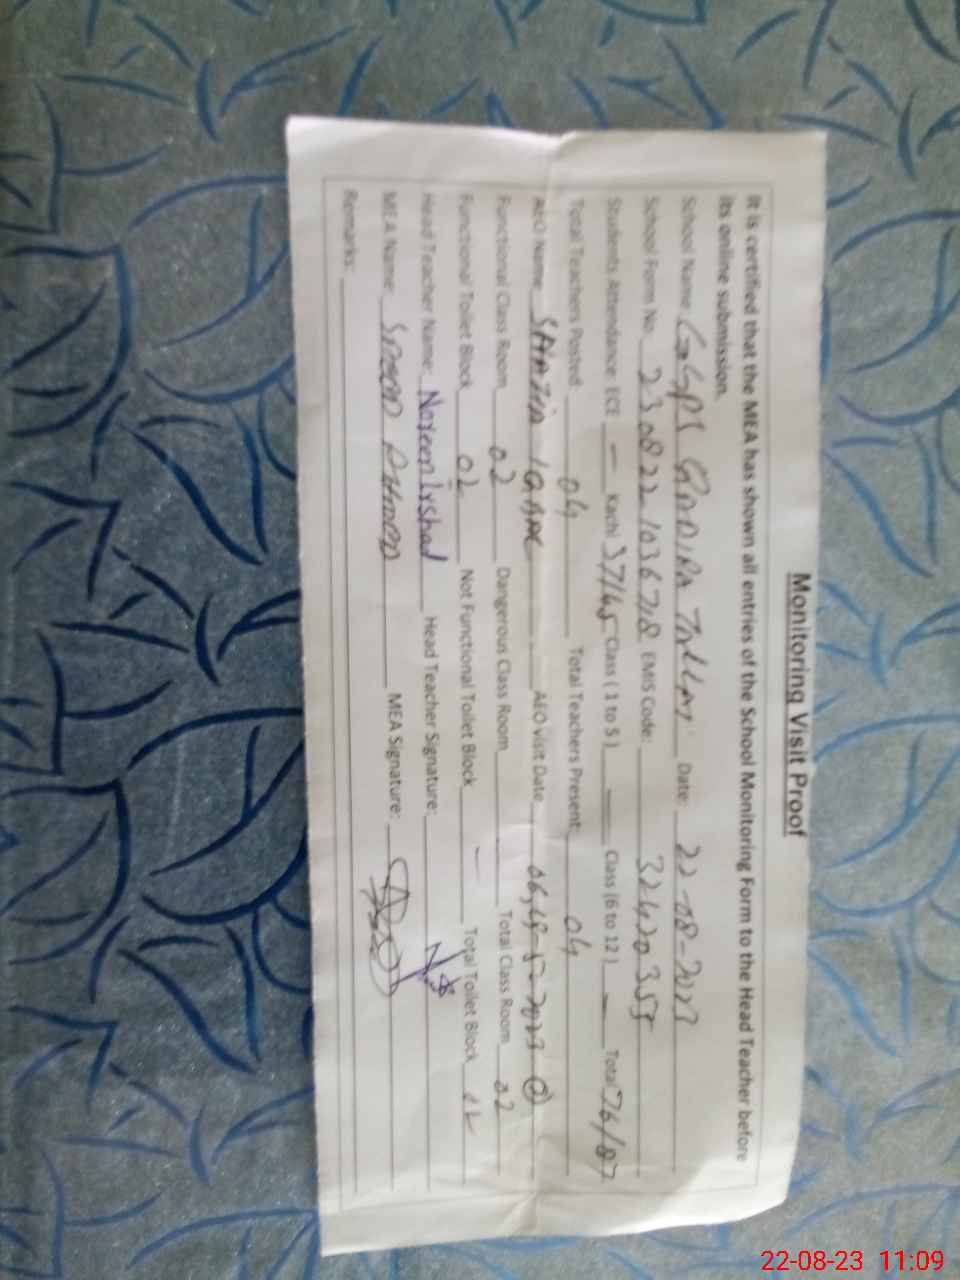 Monitoring Visit Proof
It is certified that the MEA has shown all entries of the School Monitoring Form to the Head Teacher before
its online submission.
School Name GGPS Date: 22-08-2023
School Form No. 230822 1036718 EMIS Code: 32420355
Students Attendance ECE — Kachi Class (1 to 5) — Class (6 to 12) — Total 76/87
Total Teachers Posted: 04 Total Teachers Present: 04
AEO Name SHAZIA IQBAL AEO visit Date
Functional Class Room 02 Dangerous Class Room Total Class Room 02
Functional Toilet Block 02 Not Functional Toilet Block — Total Toilet Block
Head Teacher Name: Noreen Irshad Head Teacher Signature:
MEA Name AHMAD MEA Signature:
Remarks:
22-08-23 11:09